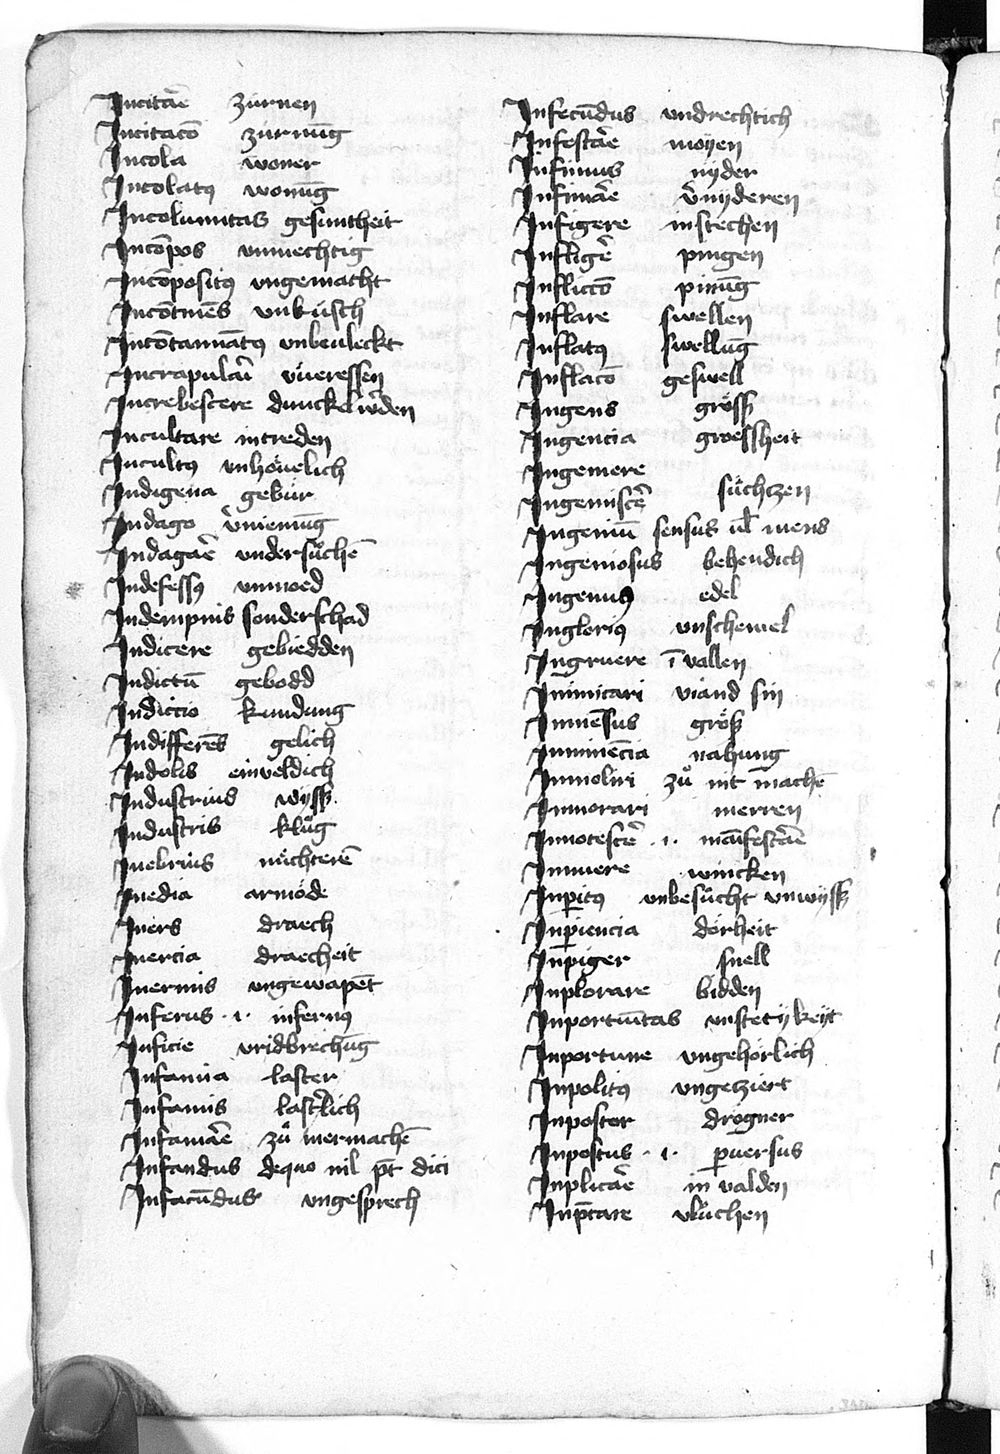 Incitāe zürnen
Incitacō zürnūg
Incola woner
Incolatꝰ wonūg
Incolumitas gesuntheit
Incōpos unmechtig
Incōpositꝰ ungemacht
Incōtinēs unküsch
Incōtaminātꝰ unbeuleckt
Incrapulari üveressen
Increbescere dunckel w̓den
Incultare intreden
Incultꝰ unhöuelich
Indigena gebür
Indago v̓niemūg
Indagāe undersůchē
Indefessꝰ unmoed
Indempnis sonderschad
Indicere gebiedden
Indictū gebodd
Indiccio kundung
Indifferēs gelich
Indolis einveldich
Industrius wyssʒ
Industris klůg
Inebrius nüchterē
Inedia armöde
Iners draech
Inercia draecheit
Inermis ungewapēt
Inferus .i. infernꝰ
Inficie vridbrechūg
Infamia laster
Infamis last̓lich
Infamāe zů niermachē
Infandus dequo nil pt̄ dici
Infacūdus ungesprech
Infecūdus undrechtich
Infestāe moÿen
Infimus nÿder
Infimāe v̓nÿderen
Infigere instechen
Infligē pingen
Infliccō pinūg
Inflare swellen
Inflatꝰ swellūg
Inflacō geswell
Ingens grösʒ
Ingencia groessheit
Ingemere
Ingemiscē süchczen
Ingeniū sensus ul̄ mens
Ingeniosus behendich
Ingenuꝰ edel
Ingloriꝰ unschemel
Ingruere ī vallen
Inimicari viand sin
Inmēsus grösʒ
Inminēcia nahung
Inmoliri zů nit machē
Inmorari merren
Innotescē .i. māifestāe
Innuere wincken
Inꝑitꝰ unbesůcht unwÿsʒ
Inꝑiencia dörheit
Inpiger snell
Inplorare bidden
Inportūitas unstetÿkeÿt
Inportune ungehörlich
Inpolitꝰ ungeziert
Inpostor drögner
Inpostus .i. ꝑuersus
Inplicāe in valden
Inp̄care vlůchen